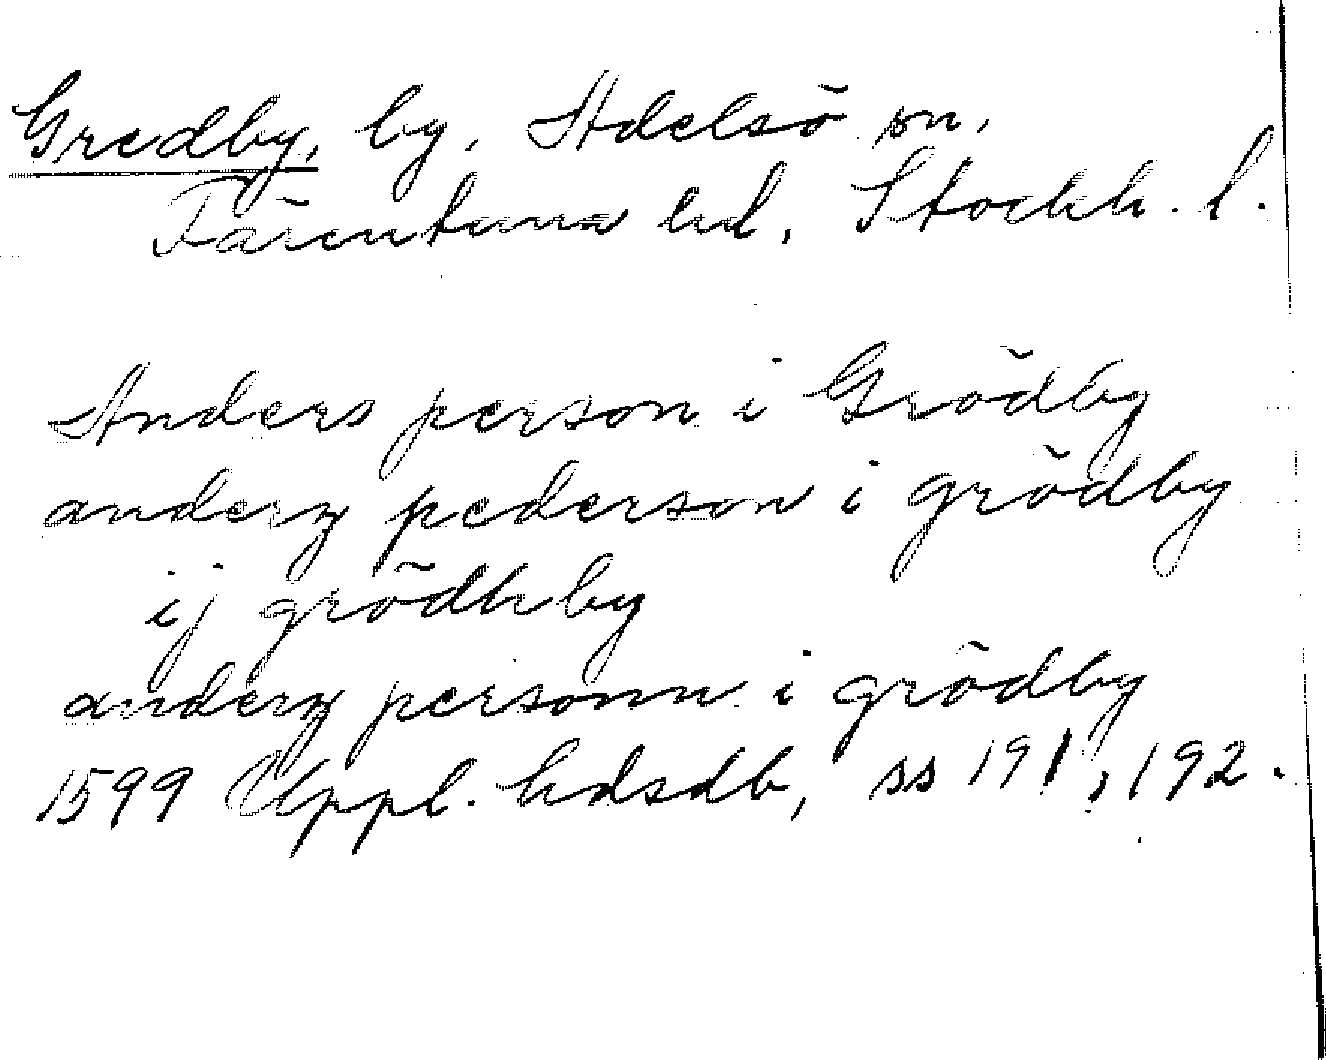 Gredby, by, Adelsö sn,
Färentuna hd, Stockh. l.
Anders person i Grödby
anderz pederson i grödby
ij grödhby
anderz personn i grödby
1599 Uppl. hdsdb, ss 191, 192.